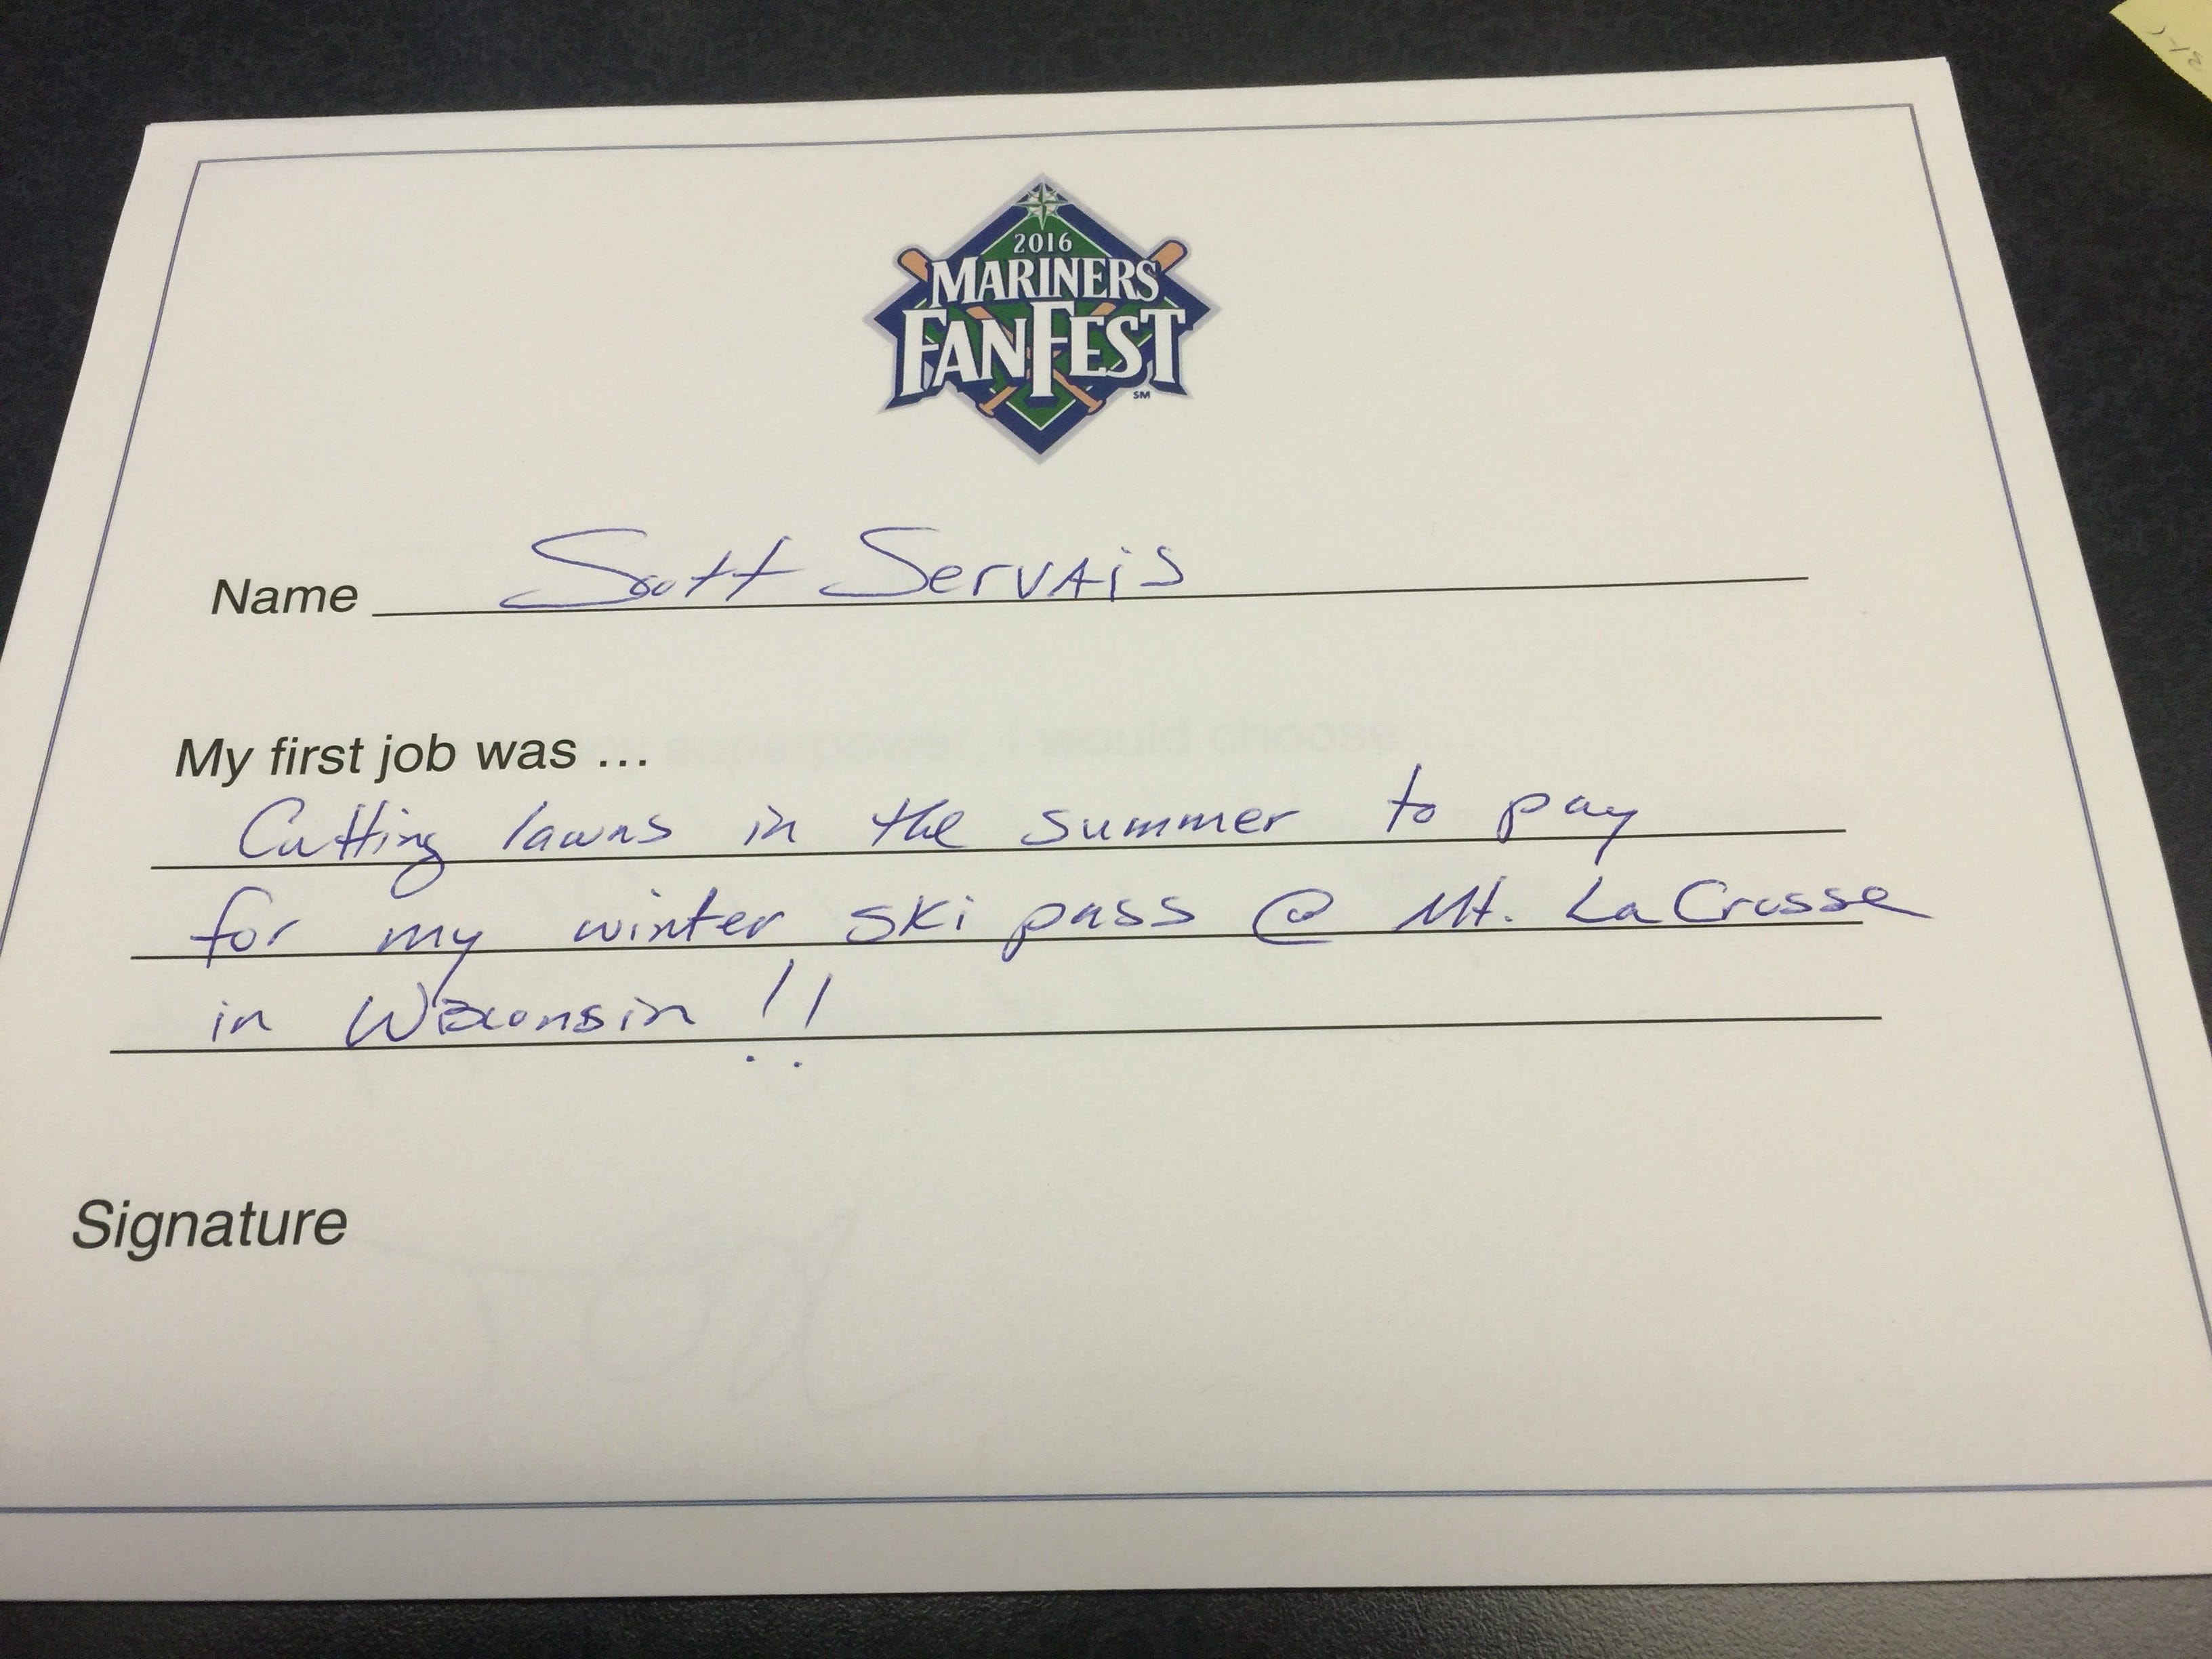 2016
MARINERS
FANFEST
SM
Name Scott Servais
My first job was ...
superpower, I would choose ...
Cutting lawns in the summer to pay
for my winter ski pass @ Mt. La Crosse
in Wisconsin !!
Signature